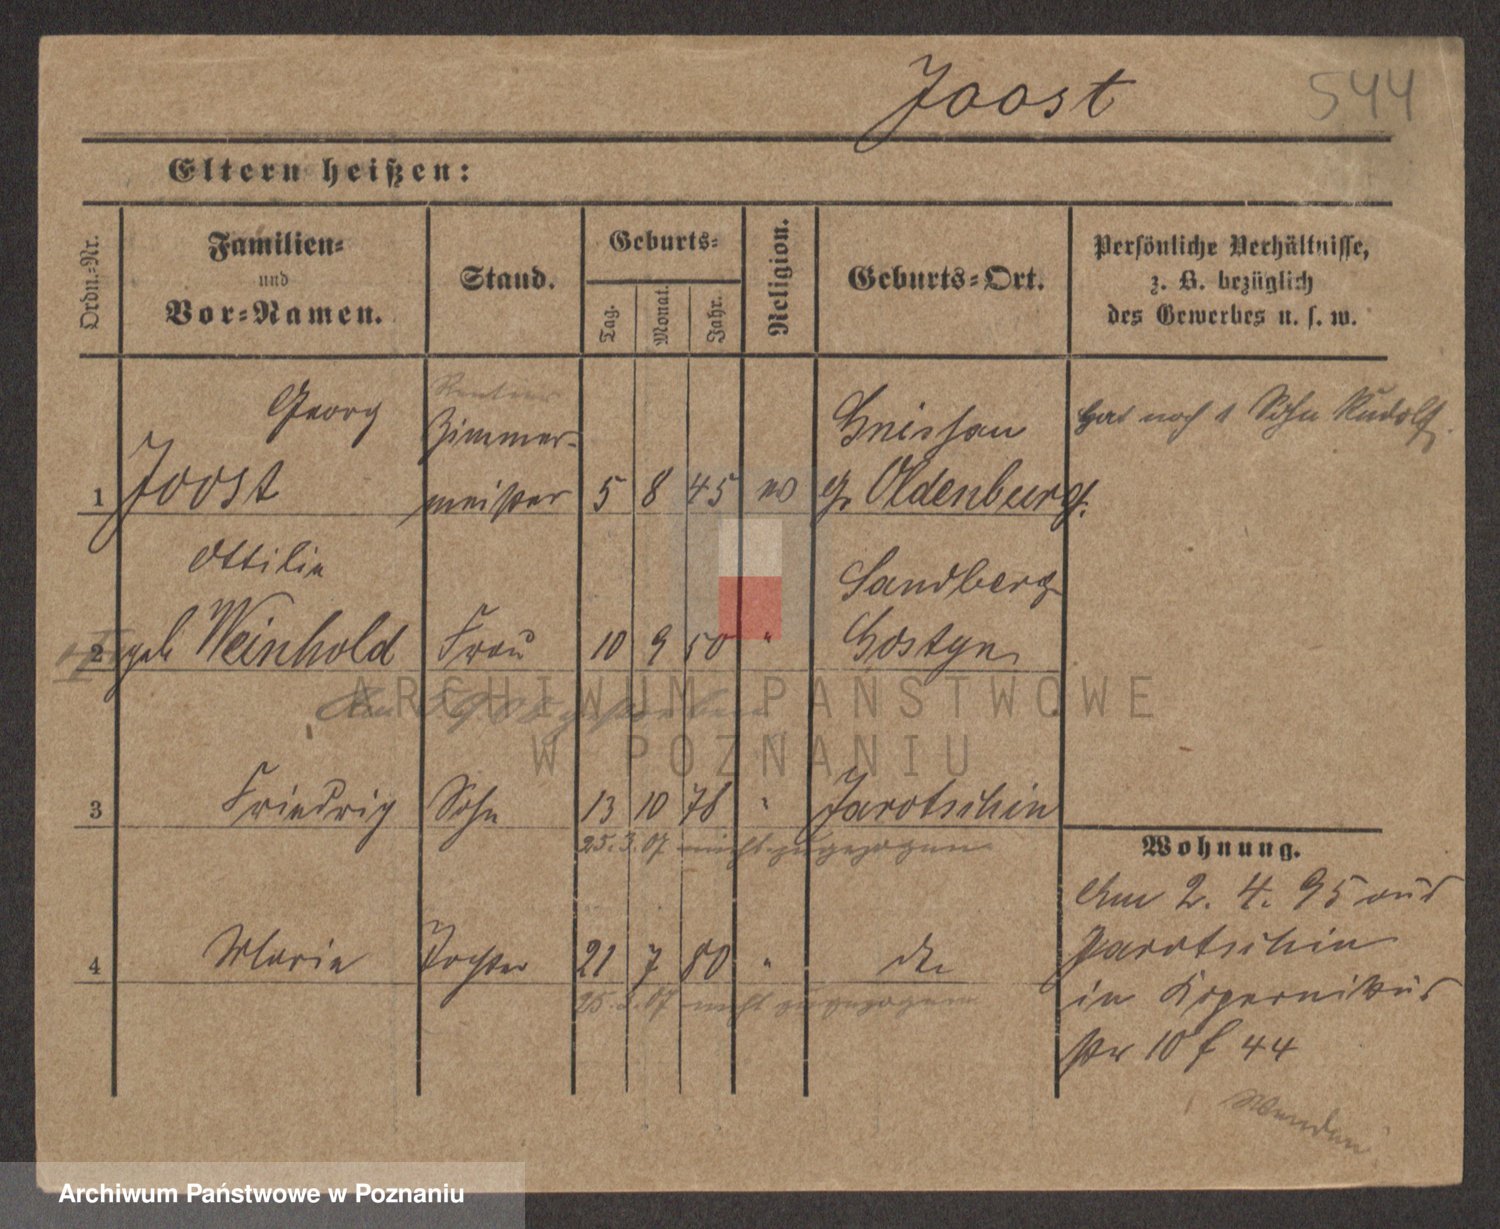 Joost 544
Eltern heißen:
Ordn.-Nr.
Familien-
und
Vor-Namen.
Stand.
Geburts-
Tag.
Monat.
Jahr.
Religion.
Geburts-Ort.
Persönliche Verhältnisse,
z. B. bezüglich
des Gewerbes u. s. w.
Rentier
Georg Zimmer- Gnissau hat noch 1 Sohn Rudolf.
1 Joost meister 5 8 45 ev Oldenburg.
Ottilie Sandberg
2 geb Weinhold Frau 10 9 50 " Gostyn
gestorben
3 Friedrich Sohn 13 10 78 " Jarotschin
25.3.07 nicht zugezogen
Wohnung.
4 Marie Tochter 21 7 80 " do
25.3.07 nicht zugezogen
Am 2. 4. 95 aus
Jarotschin
in Kopernikus
str 10 f 44
Wenden
ARCHIWUM PAŃSTWOWE
W POZNANIU
Archiwum Państwowe w Poznaniu